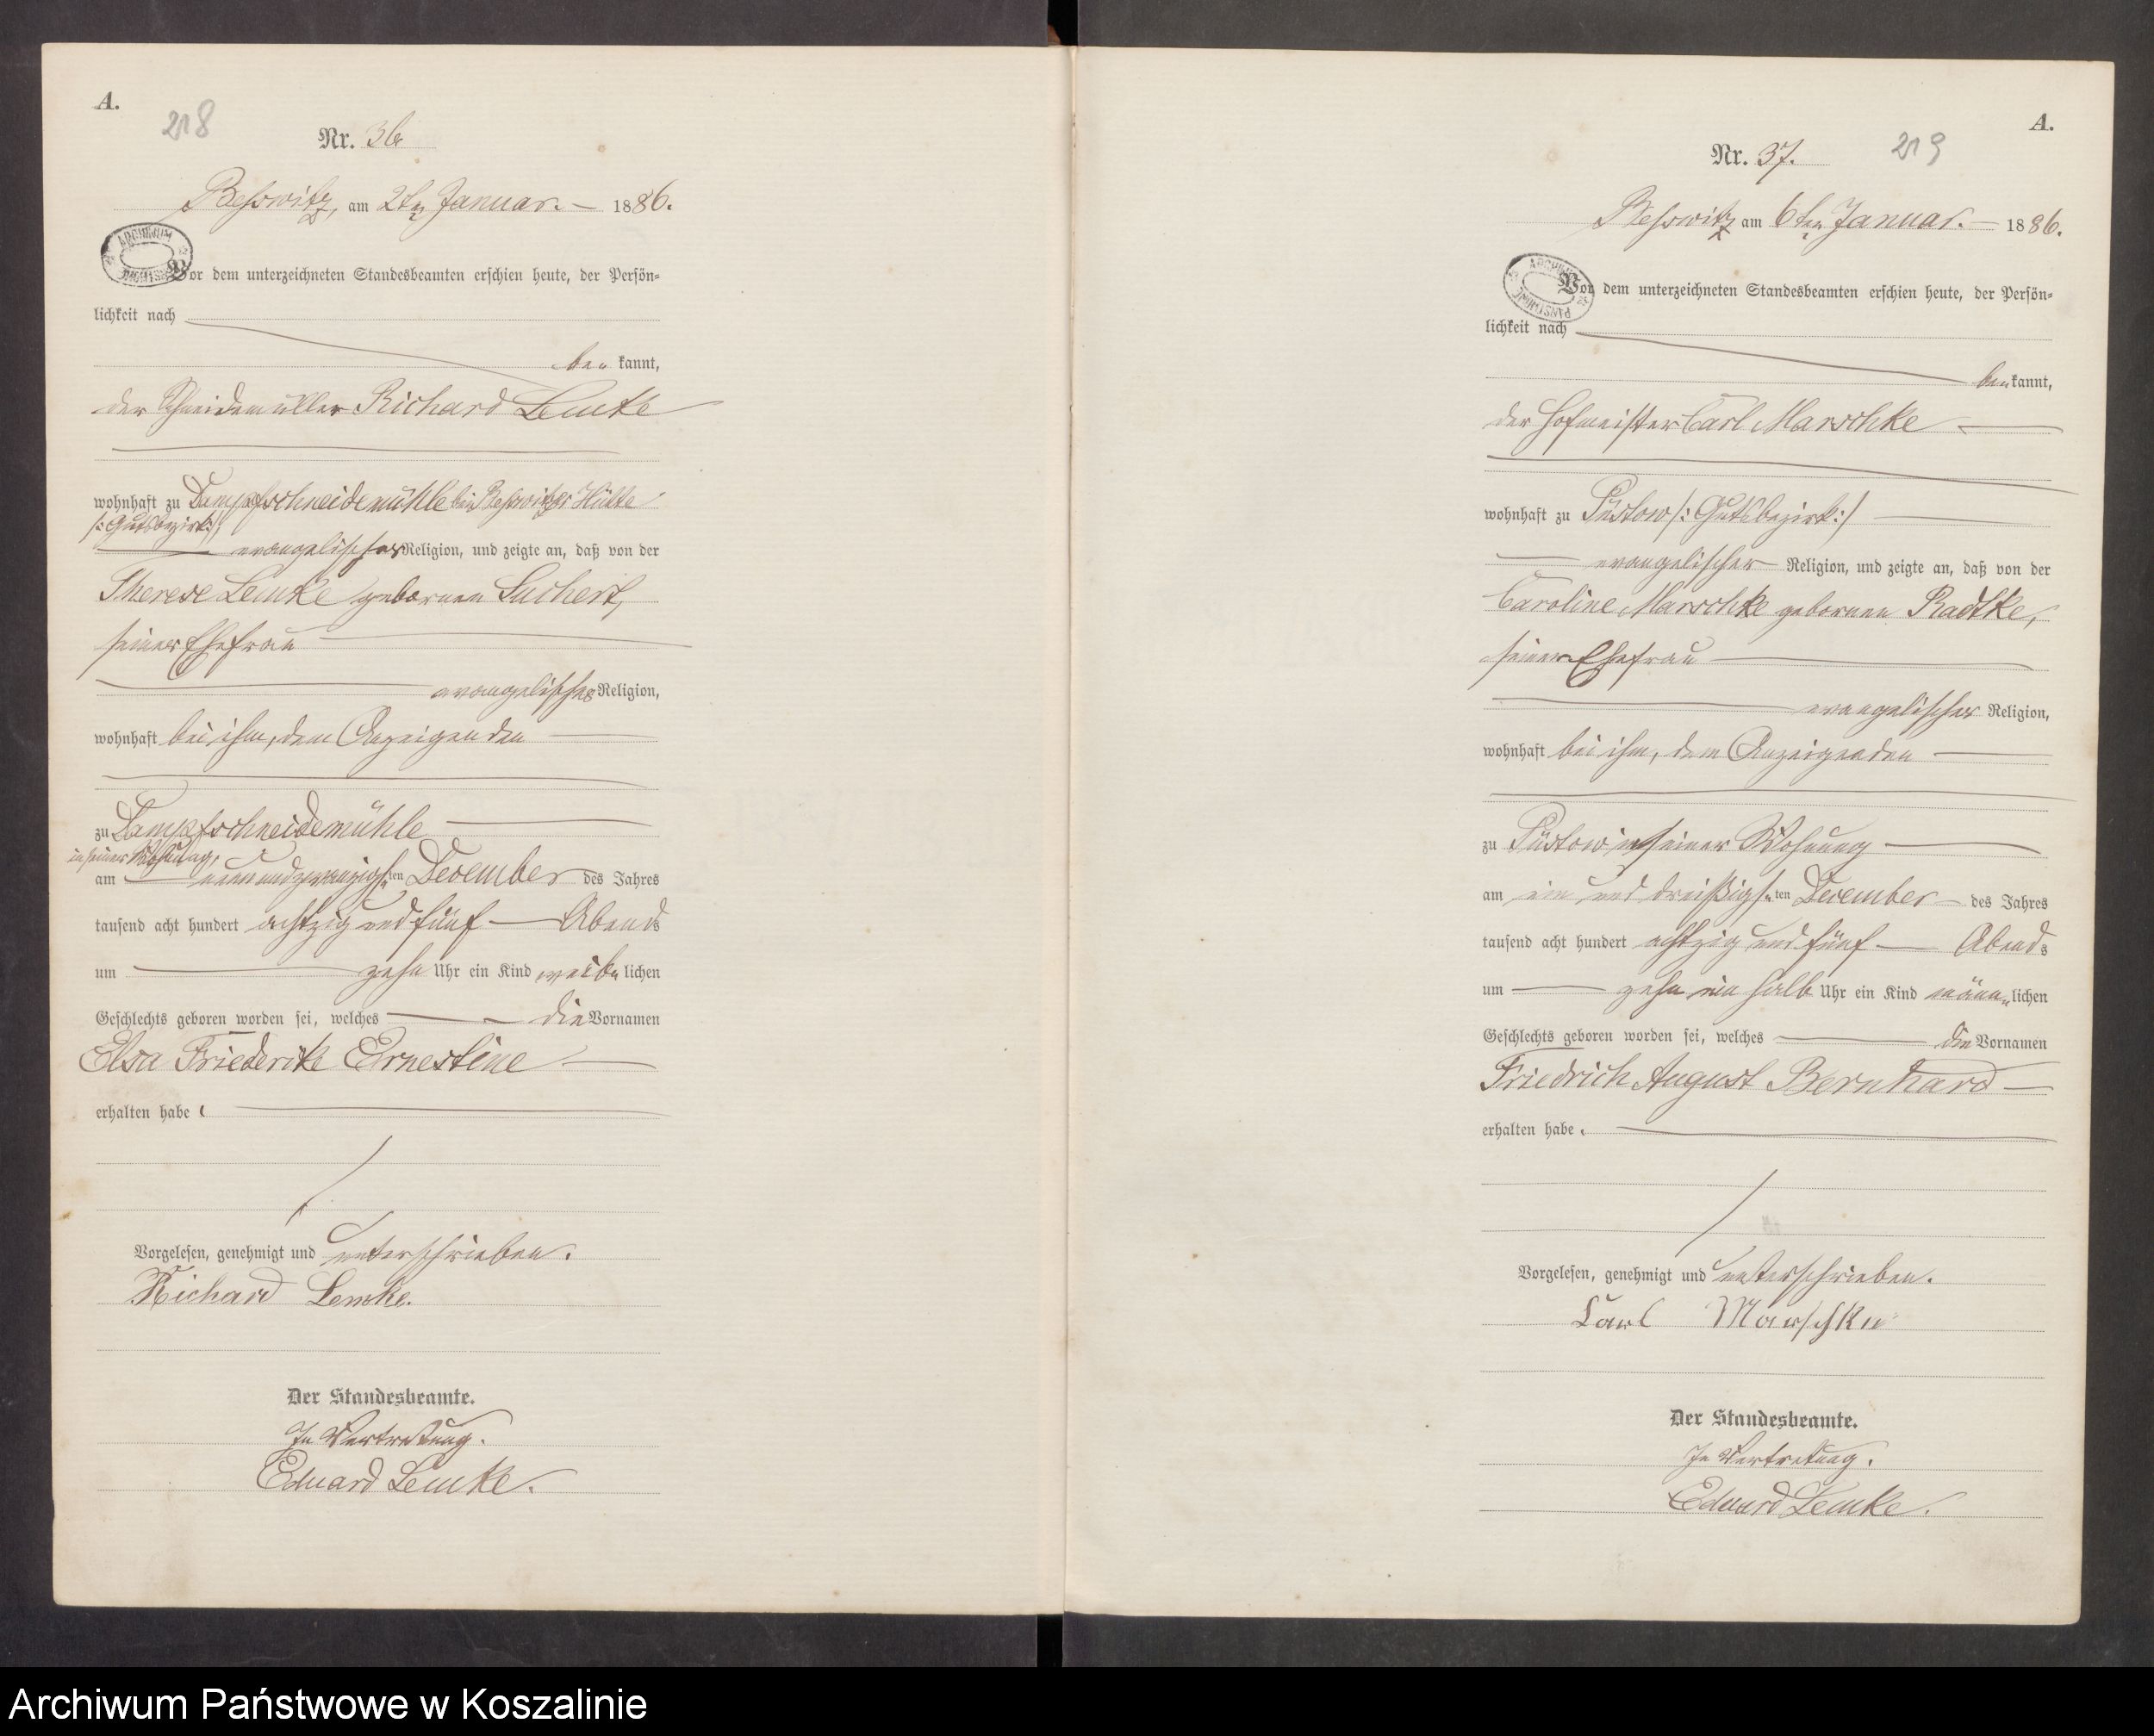 A.
218
Nr. 36
Beßwitz, am 2ten Januar. 1886.
ARCHIWUM
Vor dem unterzeichneten Standesbeamten erschien heute, der Persön-
lichkeit nach
be kannt,
der Schneidemüller Richard Lemke
wohnhaft zu Dampfschneidemühle bei Beßwitzer Hütte
/: Gutsbezirk :/,
evangelischer Religion, und zeigte an, daß von der
Therese Lemke geborenen Suchert,
seiner Ehefrau
evangelischer Religion,
wohnhaft bei ihm, dem Anzeigenden
zu Dampfschneidemühle
in seiner Wohnung,
am neunundzwanzigsten December des Jahres
tausend acht hundert achtzig und fünf Abends
um zehn Uhr ein Kind weib lichen
Geschlechts geboren worden sei, welches die Vornamen
Elsa Friederike Ernestine
erhalten habe.
Vorgelesen, genehmigt und unterschrieben.
Richard Lemke.
Der Standesbeamte.
In Vertretung.
Eduard Lemke.
A.
219
Nr. 37.
Beßwitz am 6ten Januar. 1886.
ARCHIWUM PAŃSTWOWE
Vor dem unterzeichneten Standesbeamten erschien heute, der Persön-
lichkeit nach
be kannt,
der Hofmeister Carl Marschke
wohnhaft zu Püstow /: Gutsbezirk :/
evangelischer Religion, und zeigte an, daß von der
Caroline Marschke geborenen Radtke,
seiner Ehefrau
evangelischer Religion,
wohnhaft bei ihm, dem Anzeigenden
zu Püstow in seiner Wohnung
am ein und dreißigsten December des Jahres
tausend acht hundert achtzig und fünf Abends
um zehn ein halb Uhr ein Kind männ lichen
Geschlechts geboren worden sei, welches die Vornamen
Friedrich August Bernhard
erhalten habe.
Vorgelesen, genehmigt und unterschrieben.
Carl Marschke
Der Standesbeamte.
In Vertretung.
Eduard Lemke.
Archiwum Państwowe w Koszalinie